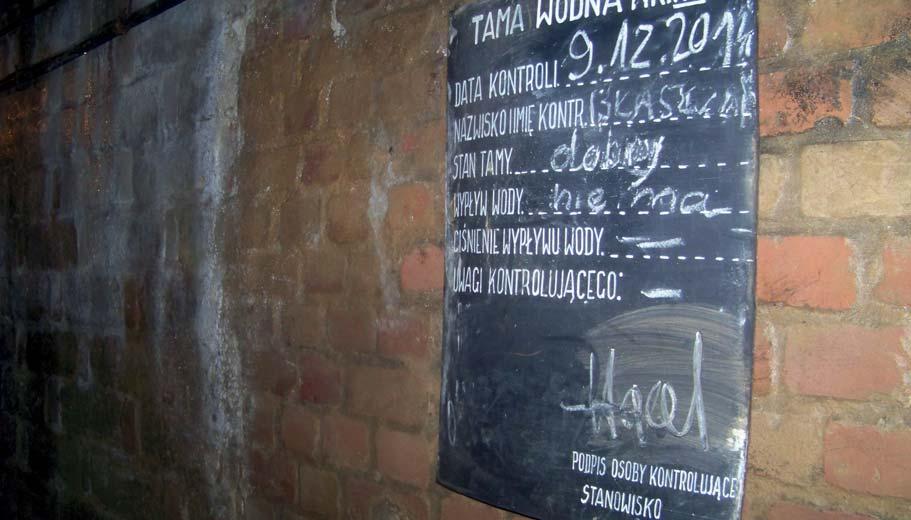 TAMA WODNA
DATA KONTROLI 9.12.2014
NAZWISKO I IMIĘ KONTR.
STAN TAMY dobry
WYPŁYW WODY nie ma
CIŚNIENIE WYPŁYWU WODY. —
UWAGI KONTROLUJĄCEGO: —
PODPIS OSOBY KONTROLUJĄCE
STANOWISKO